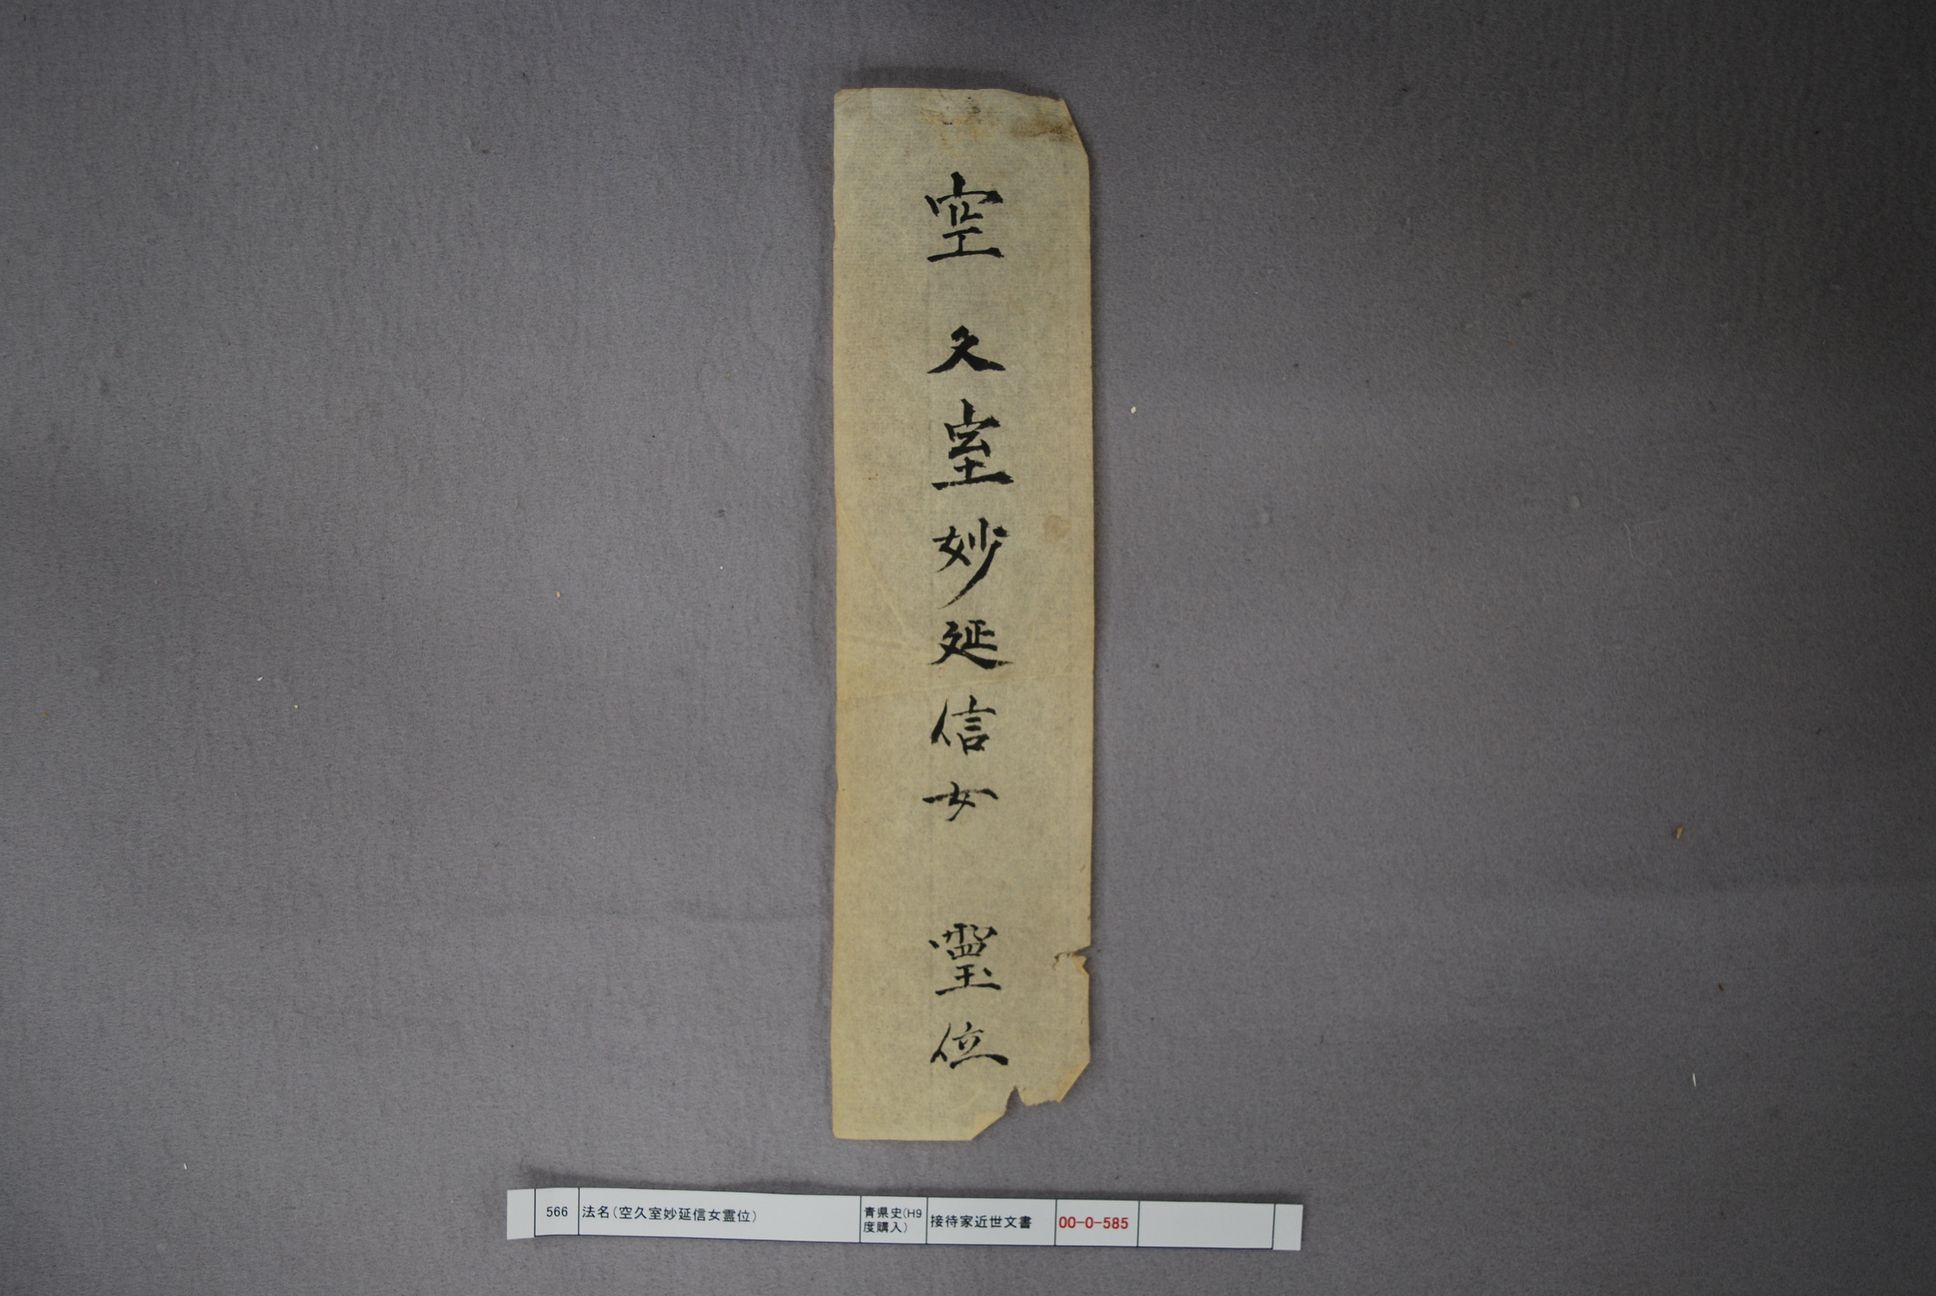 空久室妙延信女 霊位
566 法名(空久室妙延信女霊位) 青県史(H9度購入) 接待家近世文書 00-0-585